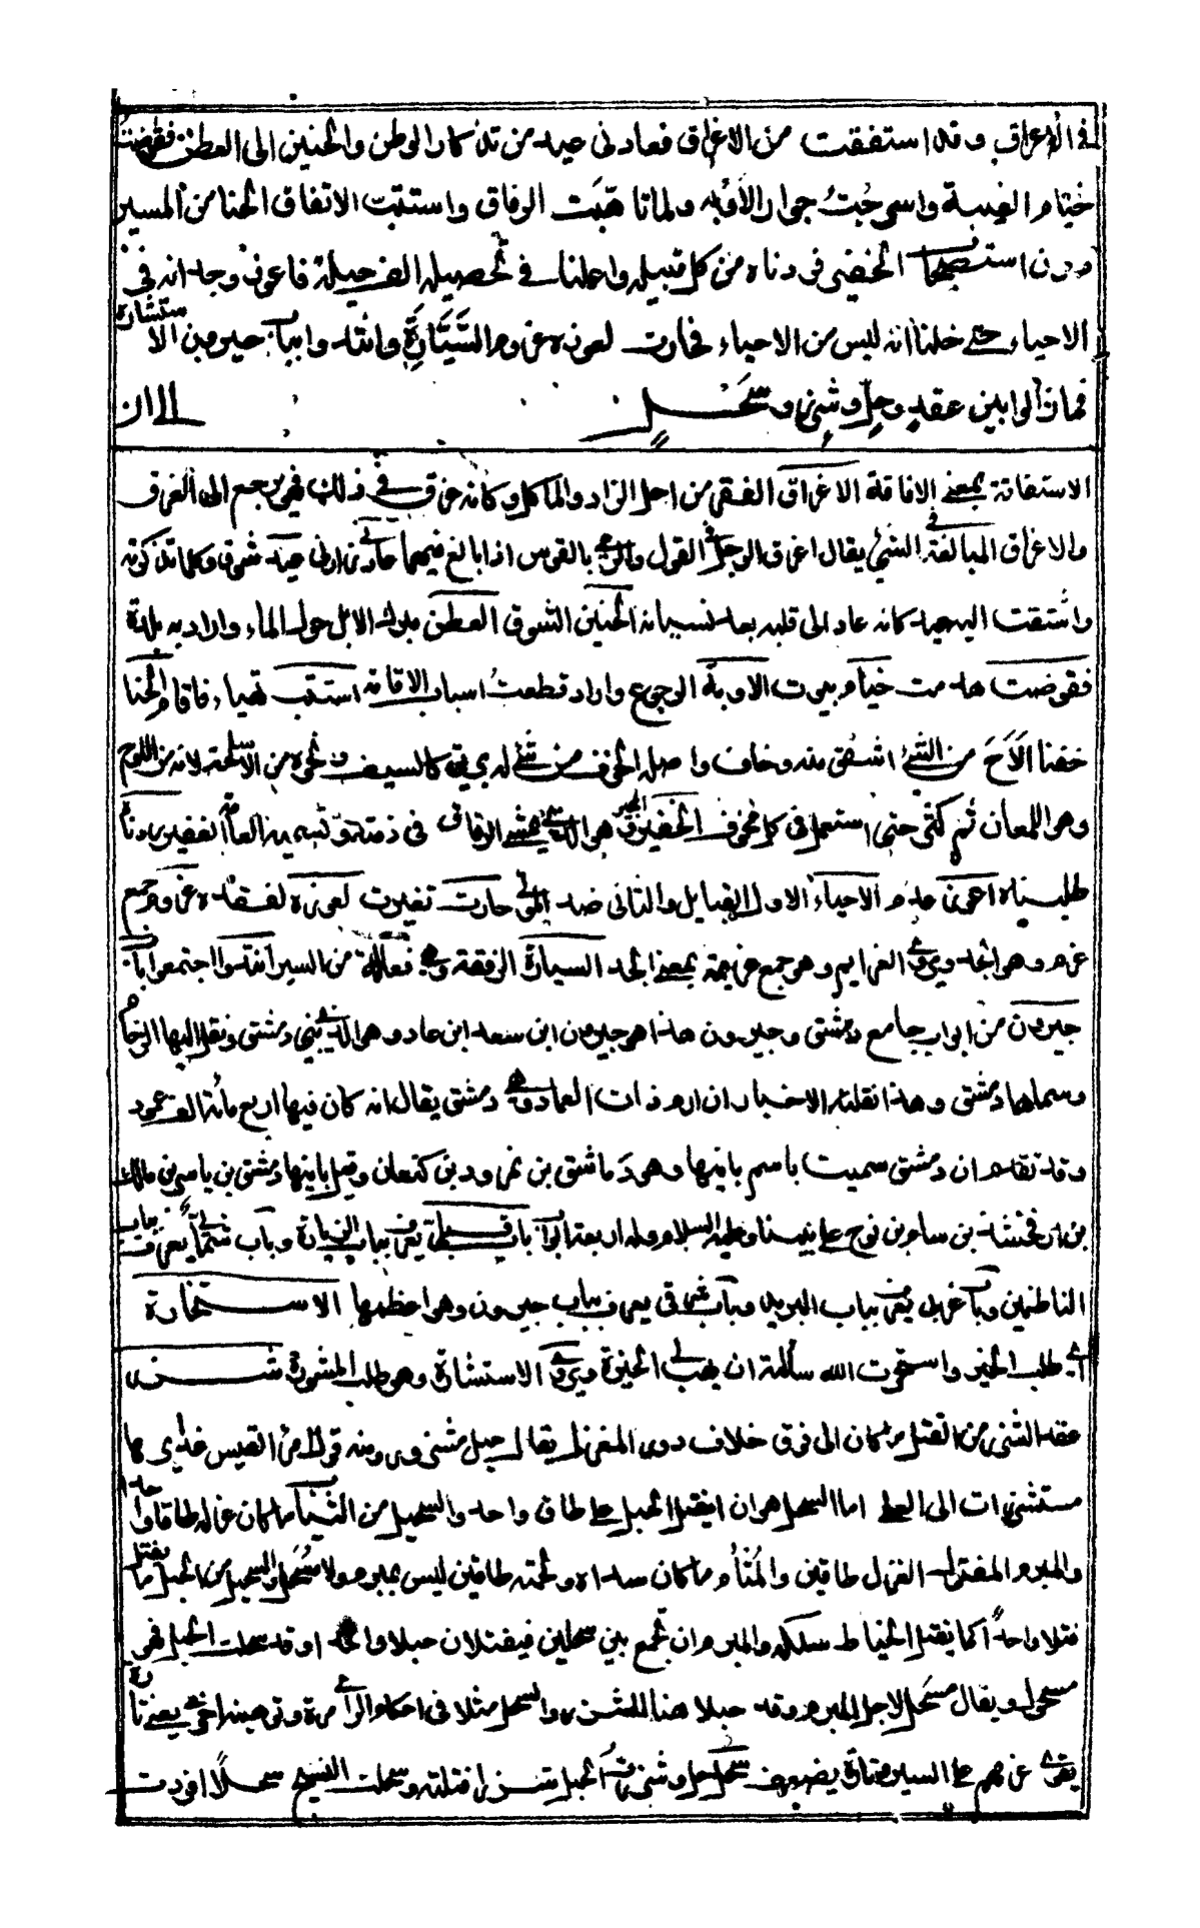 في الاغراق وقد استفقت من الاغراق فعادني عيد من تذكار الوطن والحنين الى العطن فقوضت
خيام الغيبة واسرجت جواد الاوبة ولما تأهبت الرفاق واستتب الاتفاق الحنا من المسير
دون استصحاب الخفير فردناه من كل قبيلة واعملنا في تحصيله الف حيلة فاعوز وجدانه في
الاحياء حتى خلنا انه ليس من الاحياء فحارت لعوزه عزوم السَّيَّارَة وانتدوا بباب جيرون للا ستشارة
فما زالوا بين عقدٍ وحلٍّ وشزرٍ وسَحْلٍ الى ان
الاستفاقة بمعنى الافاقة الاغراق الفقر من اجل الزاد والماكل وكانه غرق في ذلك فهو يرجع الى الغرق
والاغراق المبالغة في الشئ يقال اغرق الرجل في القول والرمي بالقوس اذا بالغ فيهما عادني عيد شوق وكلما تذكرته
واشتقت اليه عيد كانه عاد الى قلبه بعد نسيانه الحنين الشوق العطن مبرك الابل حول الماء واراد به بلدة
فقوضت هدمت خيام بيوت الاوبة الرجوع واراد قطعت اسباب الاقامة استتب تهياء فاقام الحنا
خفنا الاح من الشئ اشفق منه وخاف واصله الخوف من شئ له بريق كالسيف ونحوه من الاسلحة لانه من اللوح
وهو اللمعان ثم كثر حتى استعمل في كل مخوف الخفير المجير هو الذي يمشي الرفاق في ذمته وتسميه العامة الغفير ردناه
طلبناه اعوز عدم الاحياء الاول القبايل والثاني ضد الموتى حارت تغيرت لعوزه لفقده عزوم جمع
عزم وهو الجد ويروى العزايم وهو جمع عزيمة بمعنى الجد السيارة الرفقة وهي فعالة من السير انتدوا اجتمعوا باب
جيرون من ابواب جامع دمشق وجيرون هذا هو جيرون ابن سعد ابن عاد وهو الذي بنى دمشق ونقل اليها الرخام
وسماها دمشق وهذا نقلة الاخبار ان ارم ذات العماد هي دمشق يقال انه كان فيها اربع مائة الف عمود
وقد تقدم ان دمشق سميت باسم بانيها وهو دماشق بن نمرود بن كنعان وقيل بانيها دمشق بن ياسر بن مالك
بن ارفخشد بن سام بن نوح على نبينا وعليه السلام وله اربعة ابواب باب قبلي يعرف بباب الزيادة وباب شمالي يعرف بباب
الناطفين وباب غربي يعرف بباب البريد وباب شرقي يعرف بباب جيرون وهو اعظمها الاستخارة
اي طلب الخير واستخرت الله سألته ان يهب لي الخيرة ويروى الاستشارة وهو طلب المشورة شزر
عقد الشزر من الفتل ما كان الى فوق خلاف دور المغزل يقال حبل مشزور ومنه قول امرئ القيس غدائرها
مستشزرات الى العلى اما السحل هو ان يفتل الحبل على طاق واحد والسحيل من الثياب ما كان غزله طاقا واحدا
والمبرم المفتول الغزل طاقين والمتأم ما كان سداه ولحمته طاقين ليس بمبرم ولا مسحل والسحيل من الحبل ما يفتل
فتلا واحدا كما يفتل الخياط سلكه والمبرم ان يجمع بين سحيلين فيفتلان حبلا واحدا وقد سحلت الحبل فهو
مسحول ويقال مسحل لاجل المبرم وقد جعلا هنا للشزر والسحل مثلا في احكام الرأي مرة وتوهينه اخرى يعني تارة
يقوى عزمهم على السير وتارة يضعف سحل حل وشزرت الحبل شزرا فتلته وسحلت النسج سحلا افردت